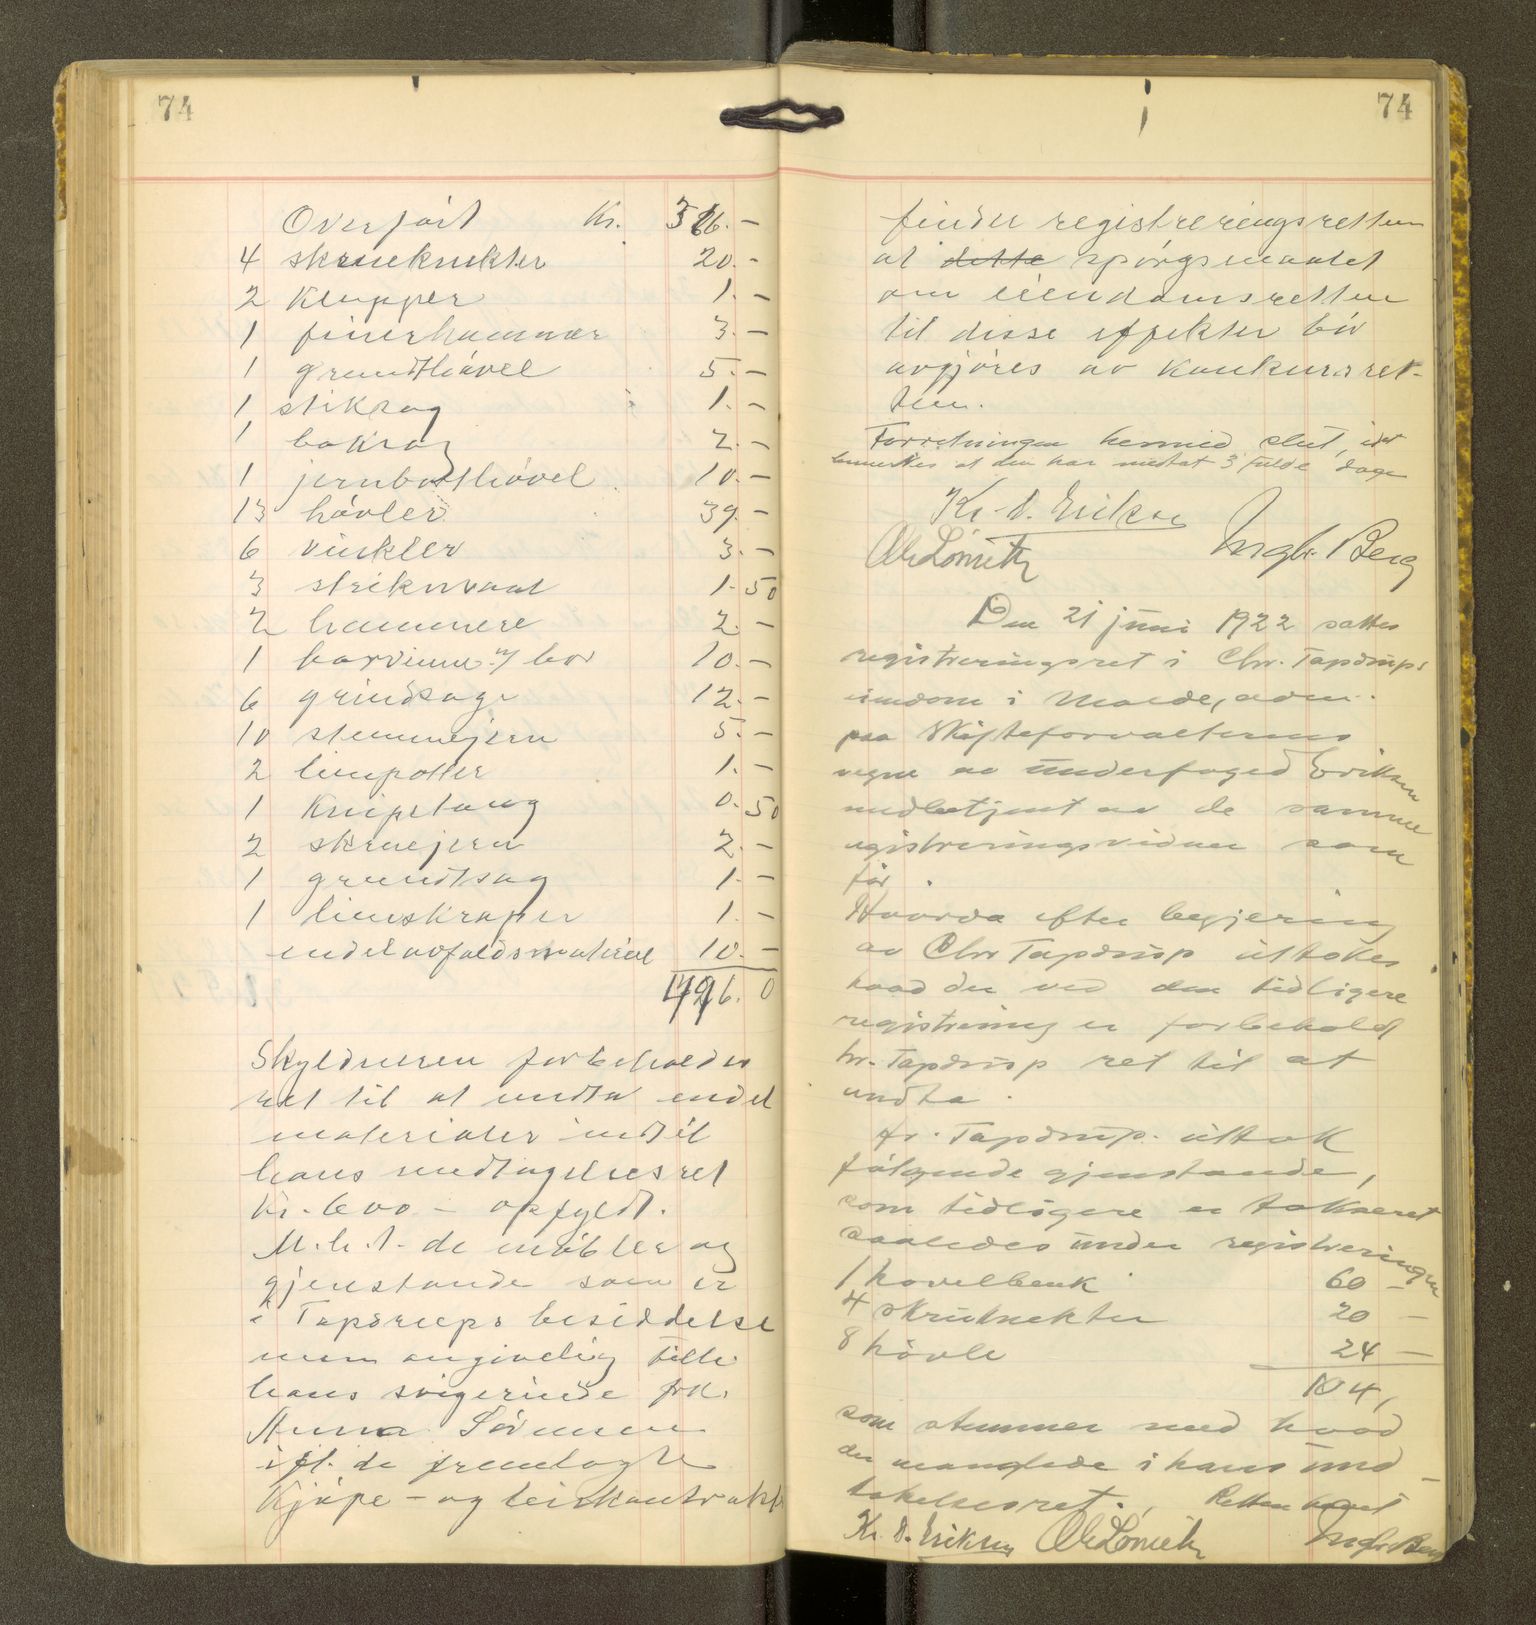 74
Overført Kr. –
4 skrueknekter 20. –
2 Klupper 1. –
1 finerhammer 3. –
1 grundthøvel 5. –
1 stiksag 1. –
1 baksag 2. –
1 10. –
13 høvler 39. –
6 vinkler 3. –
3 strekmaal 1. 50
2 hammere 2. –
1 borvinne m/ bor 10. –
6 grindsage 12. –
10 stemmejern 5. –
2 limpotter 1. –
1 Knipetang 0. 50
2 skruejern 2. –
1 grundtsag 1. –
1 limskraper 1. –
endel avfaldsmaterial 10. –
Skyldneren forbeholder
ret til at undta endel
materialer indtil
hans undtagelsesret
Kr. 600 – opfyldt.
M.h.t. de møbler og
gjenstande som er
i Tapdrups besiddelse
men angivelig tilh.
hans svigerinde frk.
Anna Sørensen
ifl. de fremlagte
Kjøpe- og leiekontrakt
74
finder registreringsretten
at dette spørgsmaalet
om eiendomsretten
til disse effekter bør
avgjøres av Konkursret-
ten.
Forretningen hermed slut, idet
bemerkes at den har medtat 3 fulde dage
Kr. D. Eriksen
Ingb. Berg
Den 21 juni 1922 sattes
registreringsret i Chr. Tapdrups
eiendom i Molde, adm.
paa Skifteforvalterens
vegne av underfoged Eriksen
medbetjent av de samme
registreringsvidner som
før.
Hvorda efter begjering
av Chr Tapdrup uttokes
hvad der ved den tidligere
registrering er forbehold
hr. Tapdrup ret til at
undta.
Hr. Tapdrup uttok
følgende gjenstande,
som tidligere er takseret
saaledes under registreringen
1 høvelbenk 60 –
4 skrueknekter 20 –
8 høvle 24 –
104,
som stemmer med hvad
der manglede i hans und-
takelsesret. Retten hævet
Kr. D. Eriksen Ingb. Berg